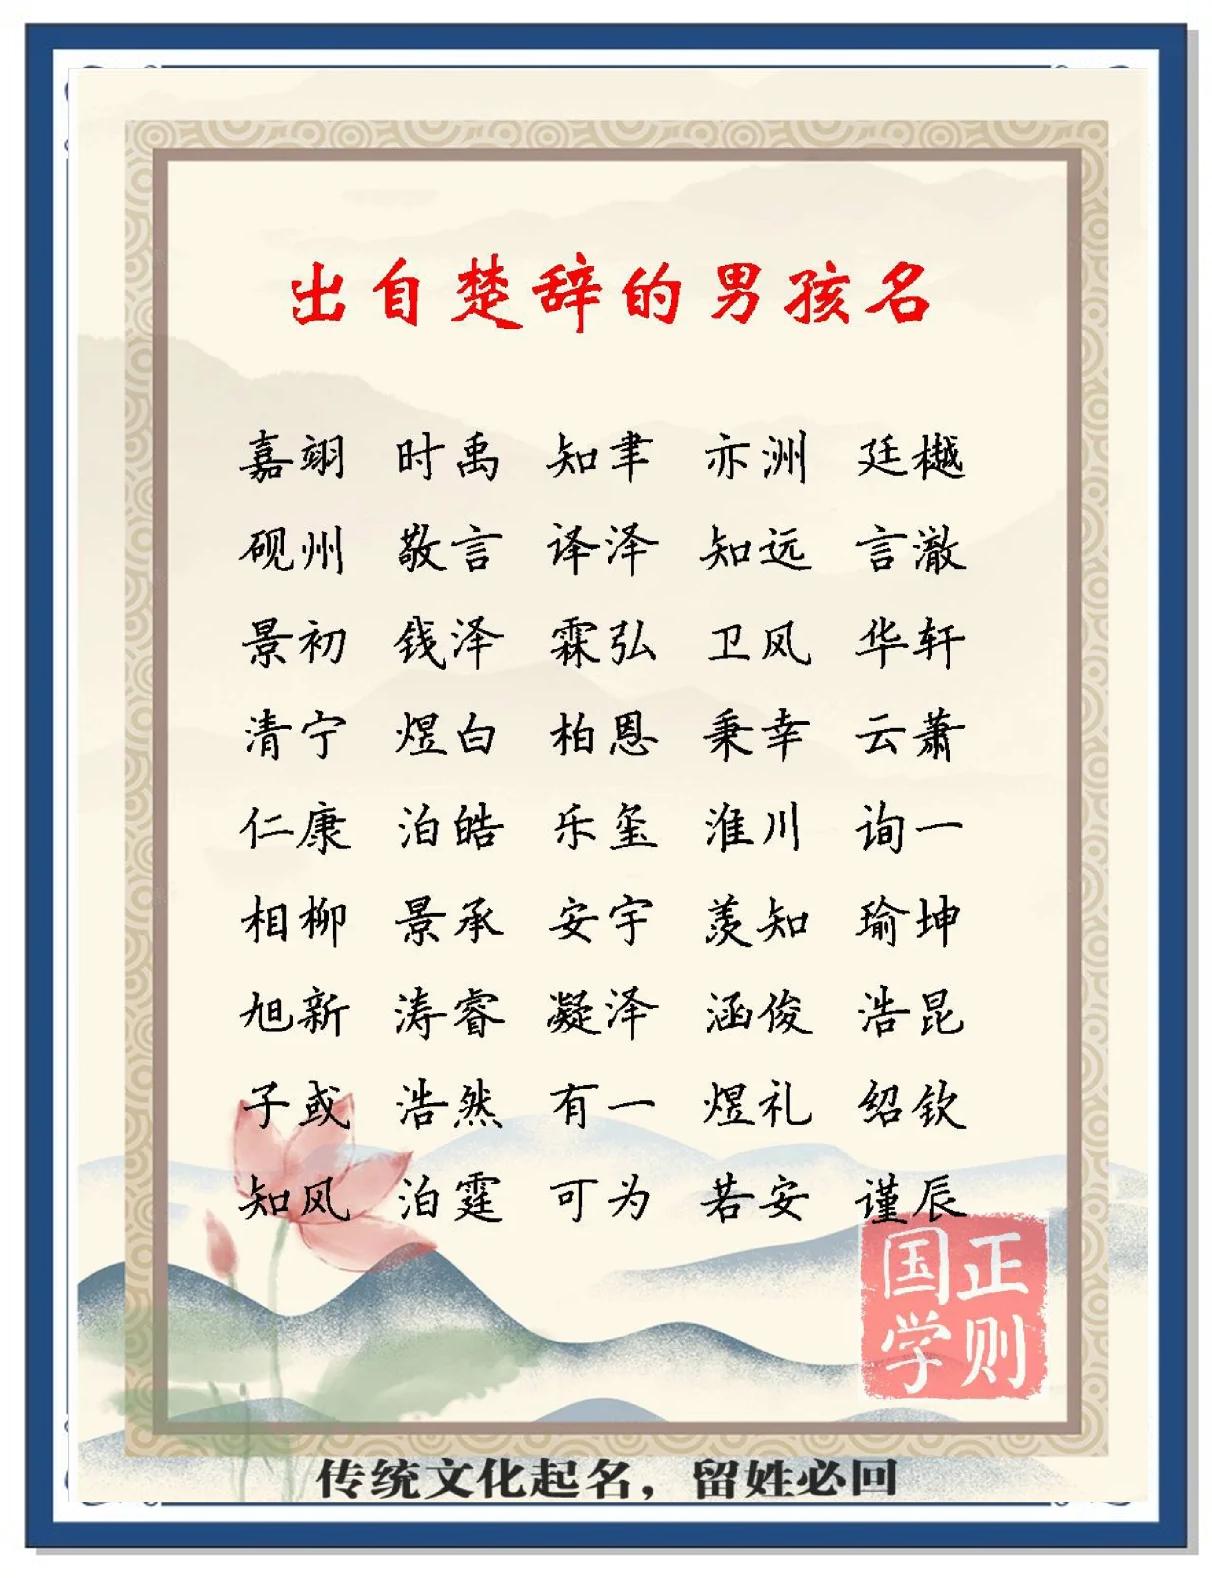 出自楚辞的男孩名
嘉翊 时禹 知聿 亦洲 廷樾
砚州 敬言 译泽 知远 言澈
景初 钱泽 霖弘 卫风 华轩
清宁 煜白 柏恩 秉幸 云萧
仁康 泊皓 乐玺 淮川 询一
相柳 景承 安宇 羡知 瑜坤
旭新 涛睿 凝泽 涵俊 浩昆
子彧 浩然 有一 煜礼 绍钦
知风 泊霆 可为 若安 谨辰
正则国学
传统文化起名，留姓必回